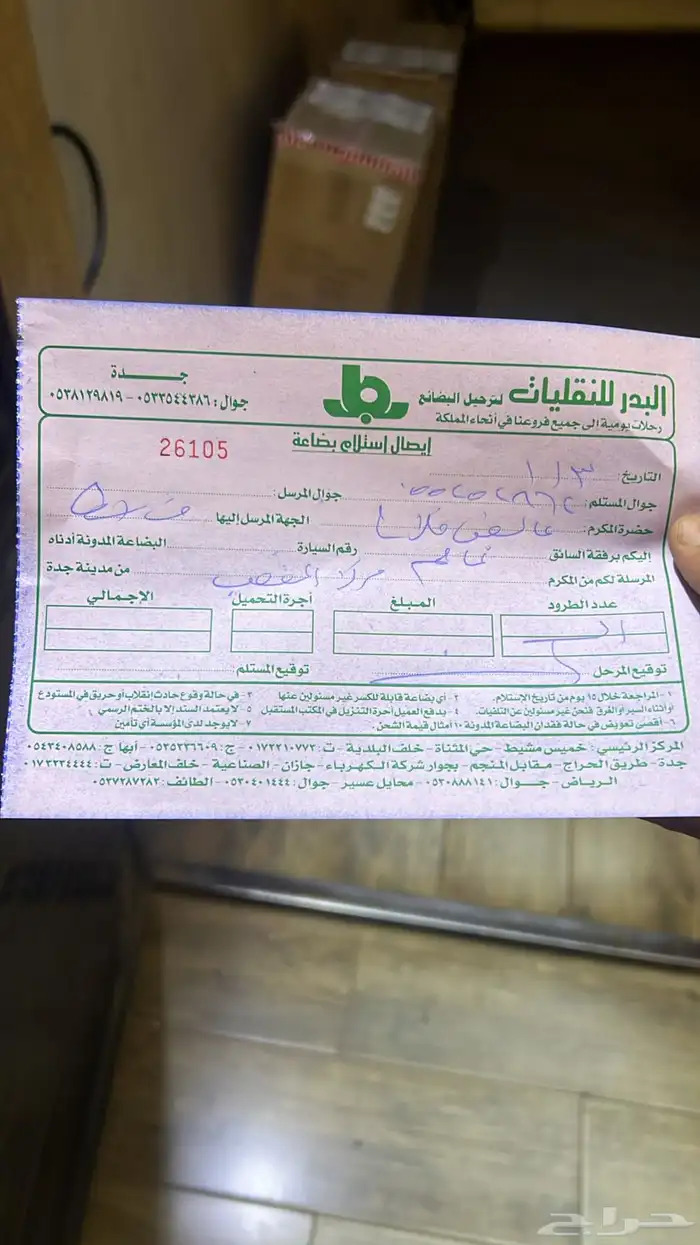 البدر للنقليات لترحيل البضائع
رحلات يومية إلى جميع فروعنا في أنحاء المملكة
جـــدة
جوال: ٠٥٣٣٥٤٤٣٨٦ - ٠٥٣٨١٢٩٨١٩
إيصال إستلام بضاعة
26105
التاريخ: ١/٣
جوال المستلم: جوال المرسل:
حضرة المكرم: الجهة المرسل إليها
إليكم برفقة السائق رقم السيارة البضاعة المدونة أدناه
المرسلة لكم من المكرم من مدينة جدة
عدد الطرود المبلغ أجرة التحميل الإجمالي
توقيع المرحل توقيع المستلم:
١- المراجعة خلال ١٥ يوم من تاريخ الإستلام. ٢- أي بضاعة قابلة للكسر غير مسئولين عنها ٣- في حالة وقوع حادث إنقلاب أو حريق في المستودع
أو أثناء السير أو الغرق فنحن غير مسئولين عن التلفيات. ٤- يدفع العميل أجرة التنزيل في المكتب المستقبل ٥- لا يعتمد السند إلا بالختم الرسمي
٦- أقصى تعويض في حالة فقدان البضاعة المدونة ١٠ أمثال قيمة الشحن. ٧- لا يوجد لدى المؤسسة أي تأمين
المركز الرئيسي: خميس مشيط - حي المثناة - خلف البلدية - ت: ٠١٧٢٢١٠٧٧٢ - ج: ٠٥٣٥٢٣٦٦٠٩ - أبها ج: ٠٥٤٣٤٠٨٥٨٨
جدة - طريق الحراج - مقابل المنجم - بجوار شركة الكهرباء - جازان - الصناعية - خلف المعارض - ت: ٠١٧٢٢٣٤٤٤٤
الرياض - جـوال: ٠٥٣٠٨٨٨١٤١ - محايل عسير - جوال: ٠٥٣٠٤٠١٤٤٤ - الطائف: ٠٥٣٧٢٨٧٢٨٢
حراج